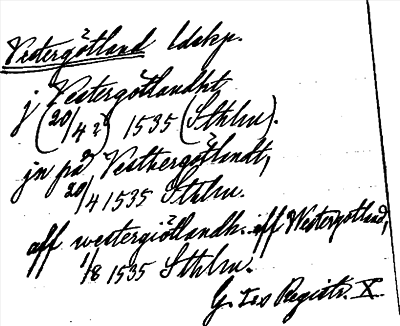 Vestergötland ldskp.
j Vestergötlandht
(20/4 i) 1535 (Sthlm).
jn på Vesthergötlandt,
20/4 1535 Sthlm.
aff westergiötlandh. aff Westergotland,
1/8 1535 Sthlm.
G. I:es Registr. X.